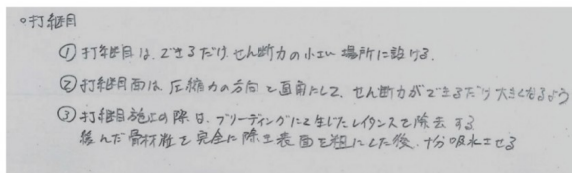 ○打継目
①打継目は、できるだけせん断力の小さい場所に設ける.
②打継目面は圧縮力の方向と直角にして、せん断力ができるだけ大きくなるよう
③打継目施工の際は、ブリーディングにより生じたレイタンスを除去する
緩んだ骨材粒を完全に除き表面を粗にした後、十分吸水させる